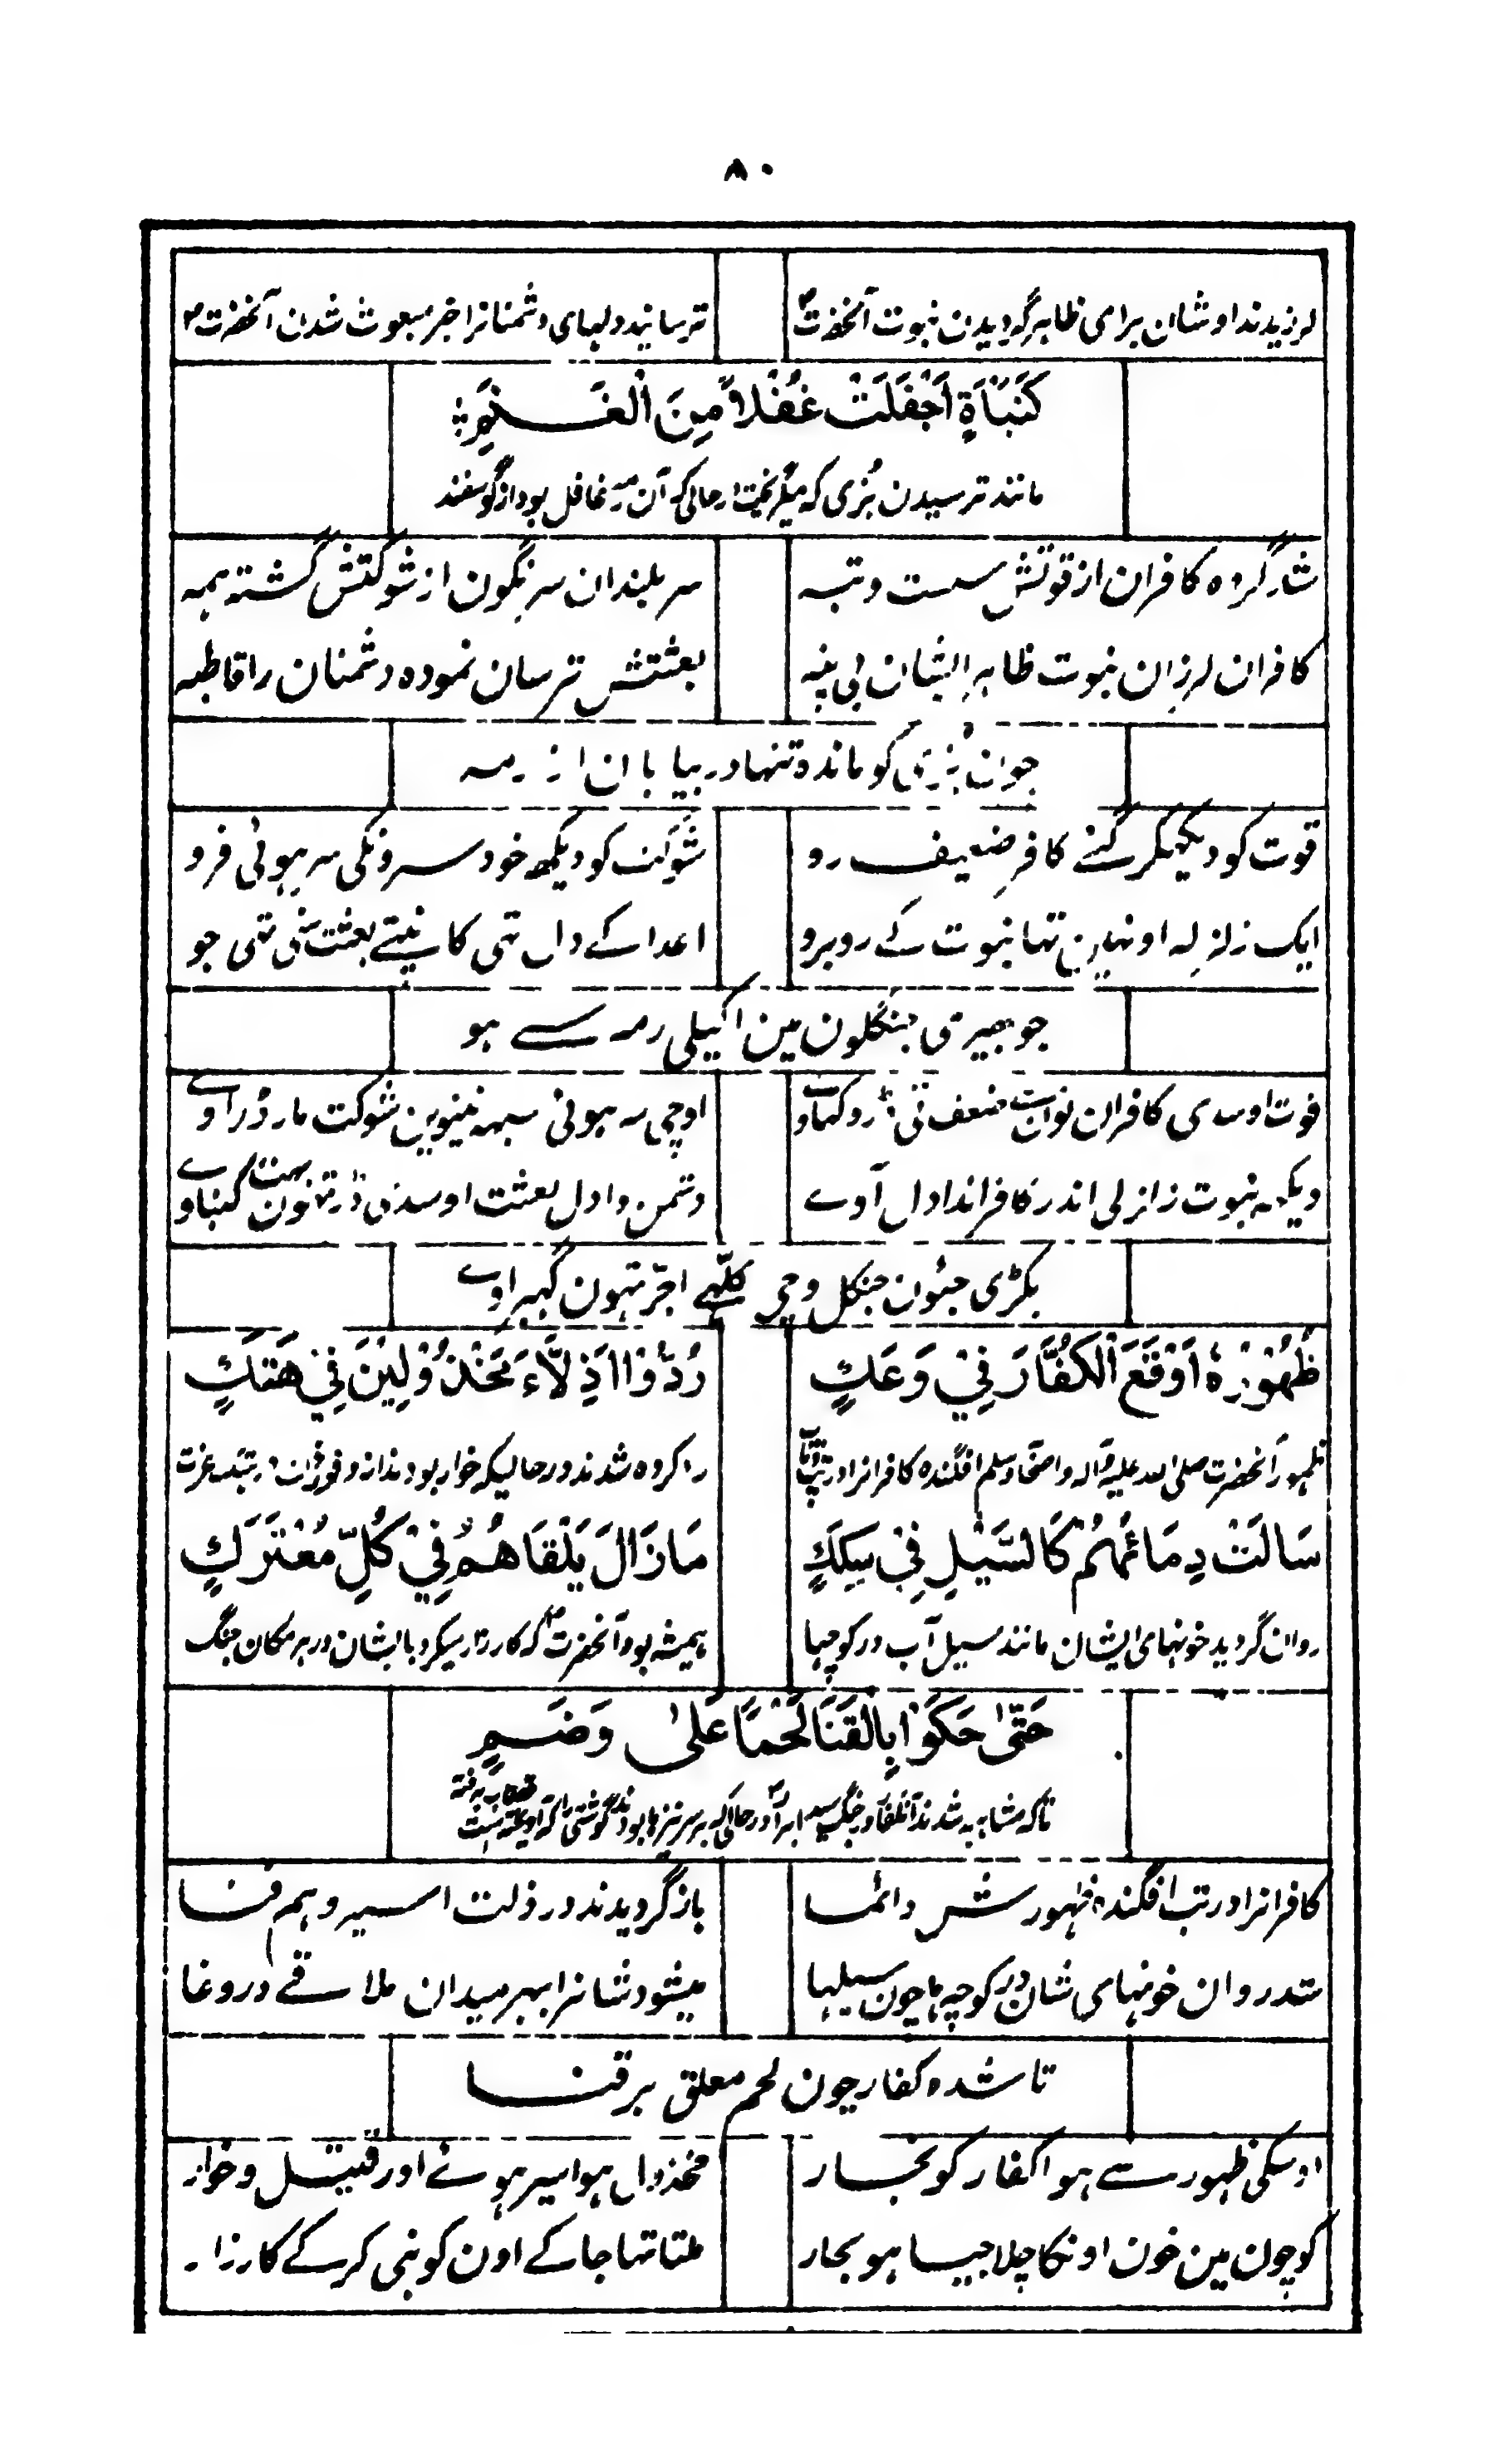 ۸۰
لرزیدند اوشان برای ظاہر گردیدن نبوت آنحضرتؐ
ترسانید دلہای دشمنانرا خبر مبعوث شدن آنحضرتؐ
كَنَبْأَةٍ اَجْفَلَتْ غُفْلاً مِنَ الْغَنَمِ
مانند ترسیدن بُزی که میگریخت در حالی که آن بز غافل بود از گوسفند
شد گروه کافران از قوتش سست و تبه
سر بلندان سر نگون از شوکتش گشته همه
کافران لرزان نبوت ظاہر ایشان بی پنه
بعثتش ترسان نموده دشمنان را قاطبه
چون بُزی کو مانده تنها در بیابان از رمه
قوت کو دیکھکر گئے کافر ضعیف رو
شوکت کو دیکھ خود سرونکی سر ہوئی فرو
ایک زلزلہ اونہین تہا نبوت کے روبرو
اعدا کے دل تہی کانپتے بعثت سنی تہی جو
جو بھیڑی جنگلون مین اکیلی رمہ سے ہو
قوت اوسدی کافران نوان ضعف تی ڈرو کہاوے
اوچی سر ہوئی سبہہ نیوین شوکت مار ڈراوے
دیکہہ نبوت زلزلی اندر کافراندا دل آوے
دشمن دا دل بعثت اوسدی ڈر تہون بہت کنباوے
بکڑی جئون جنکل وچی کلّہے اجّر تہون گہبراوے
ظُهُوْرُهٗ اَوْقَعَ الْكُفَّارَ فِيْ وَعَكٍ
رُدُّوْا اَذِلَّاءَ مَخْذُوْلِيْنَ فِيْ هَتَكٍ
ظہور آنحضرت صلی اللہ علیہ وآلہ واصحابہ وسلم افگنده کافرانرا در تپ
رد کرده شدند در حالیکه خوار بودند
سَالَتْ دِمَائُهُمْ كَالسَّيْلِ فِيْ سِكَكٍ
مَا زَالَ يَلْقَاهُمْ فِيْ كُلِّ مُعْتَرَكٍ
روان گردید خونہای ایشان مانند سیل آب در کوچہا
ہمیشه بود آنحضرتؐ که کارزار میکرد با ایشان در ہر مکان جنگ
حَتّٰى حَكَوْا بِالْقَنَا لَحْمًا عَلٰى وَضَمٍ
تا که مشابه شدند
کافرانرا در تب افگنده ظہورش دائما
باز گردیدند در ذلت اسیر و ہم فنا
شد روان خونہای شان در کوچہ ہا چون سیلہا
میشود شانرا بہر میدان ملاقے در وغا
تا شده کفار چون لحم معلق بر قنا
اوسکی ظہور سے ہوا کفار کو بخار
مخذول ہو اسیر ہوئے اور قتیل و خوار
کوچون مین خون اونکا چلا جیسا ہو بحار
ملتا تہا جا کے اون کو نبی کر کے کارزار